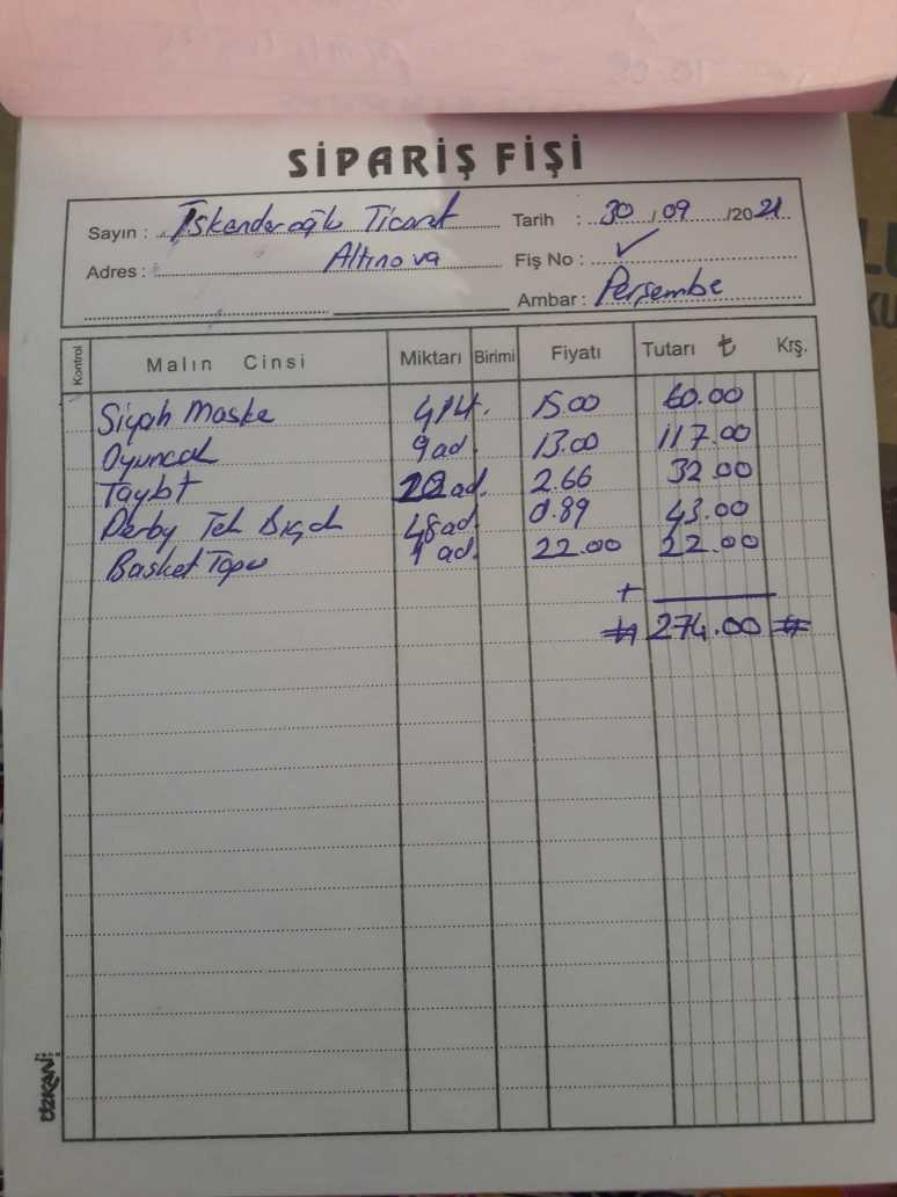 SİPARİŞ FİŞİ
Sayın : İskenderoğlu Ticaret Tarih : 30 / 09 /2021
Adres : Altınova Fiş No : ✓
Ambar : Perşembe
Kontrol Malın Cinsi Miktarı Birimi Fiyatı Tutarı ₺ Krş.
Siyah Maske 4 Pk. 15.00 60.00
Oyuncak 9 ad 13.00 117.00
Taybt ad. 2.66 32.00
Derby Tek Bıçak 48 ad. 0.89 43.00
Basket Topu 1 ad. 22.00 22.00
+
# 274.00 #